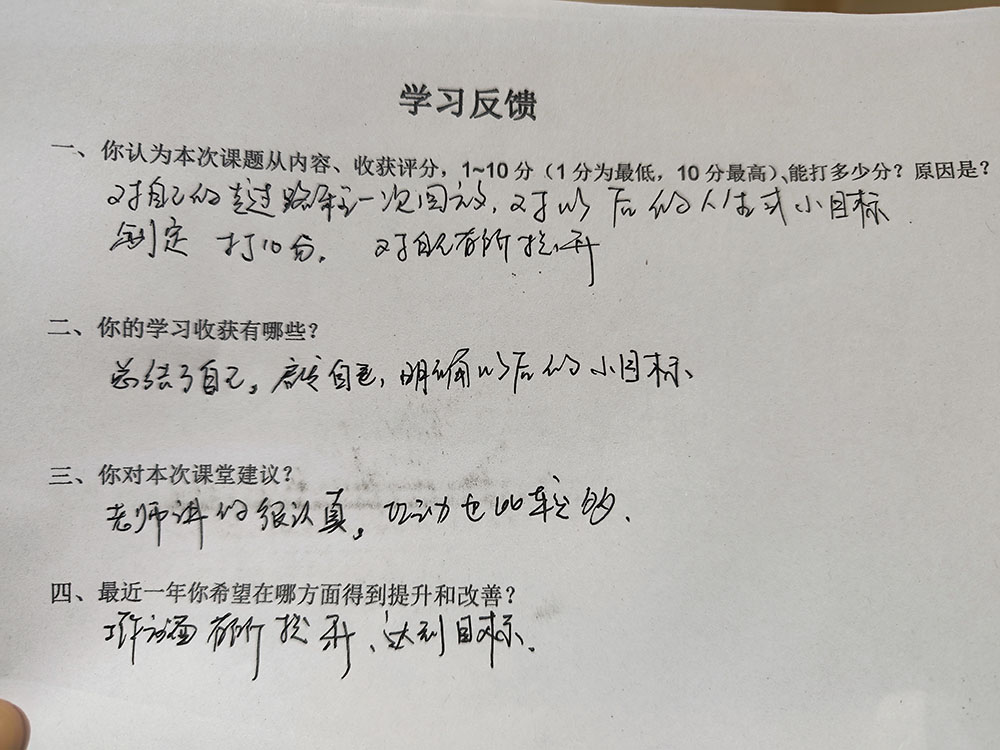 学习反馈
一、你认为本次课题从内容、收获评分，1~10分（1分为最低，10分最高）、能打多少分？原因是？
对自己的走过路程一次回放，对以后的人生或小目标
制定 打10分。 对自己有所提升
二、你的学习收获有哪些？
总结了自己。 自己，明确以后的小目标、
三、你对本次课堂建议？
老师讲的很认真。互动也比较多、
四、最近一年你希望在哪方面得到提升和改善？
有所提升、达到目标、